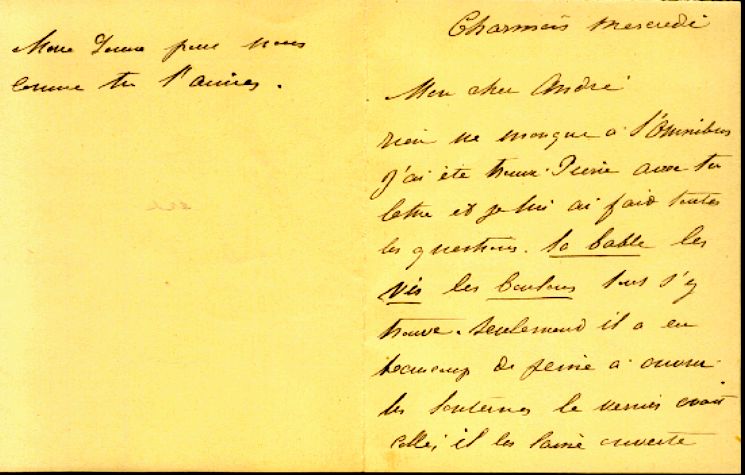 pour nous
comme tu l'aimes.
Charmois Mercredi
Mon cher André
rien ne manque à l'Omnibus
J'ai été trouver avec ta
lettre et je lui ai fait toutes
les questions. la table les
vis les boulons tout s'y
trouve. Seulement il a eu
beaucoup de peine à ouvrir
les lanternes le vernis avait
collé, il les laisse ouverte